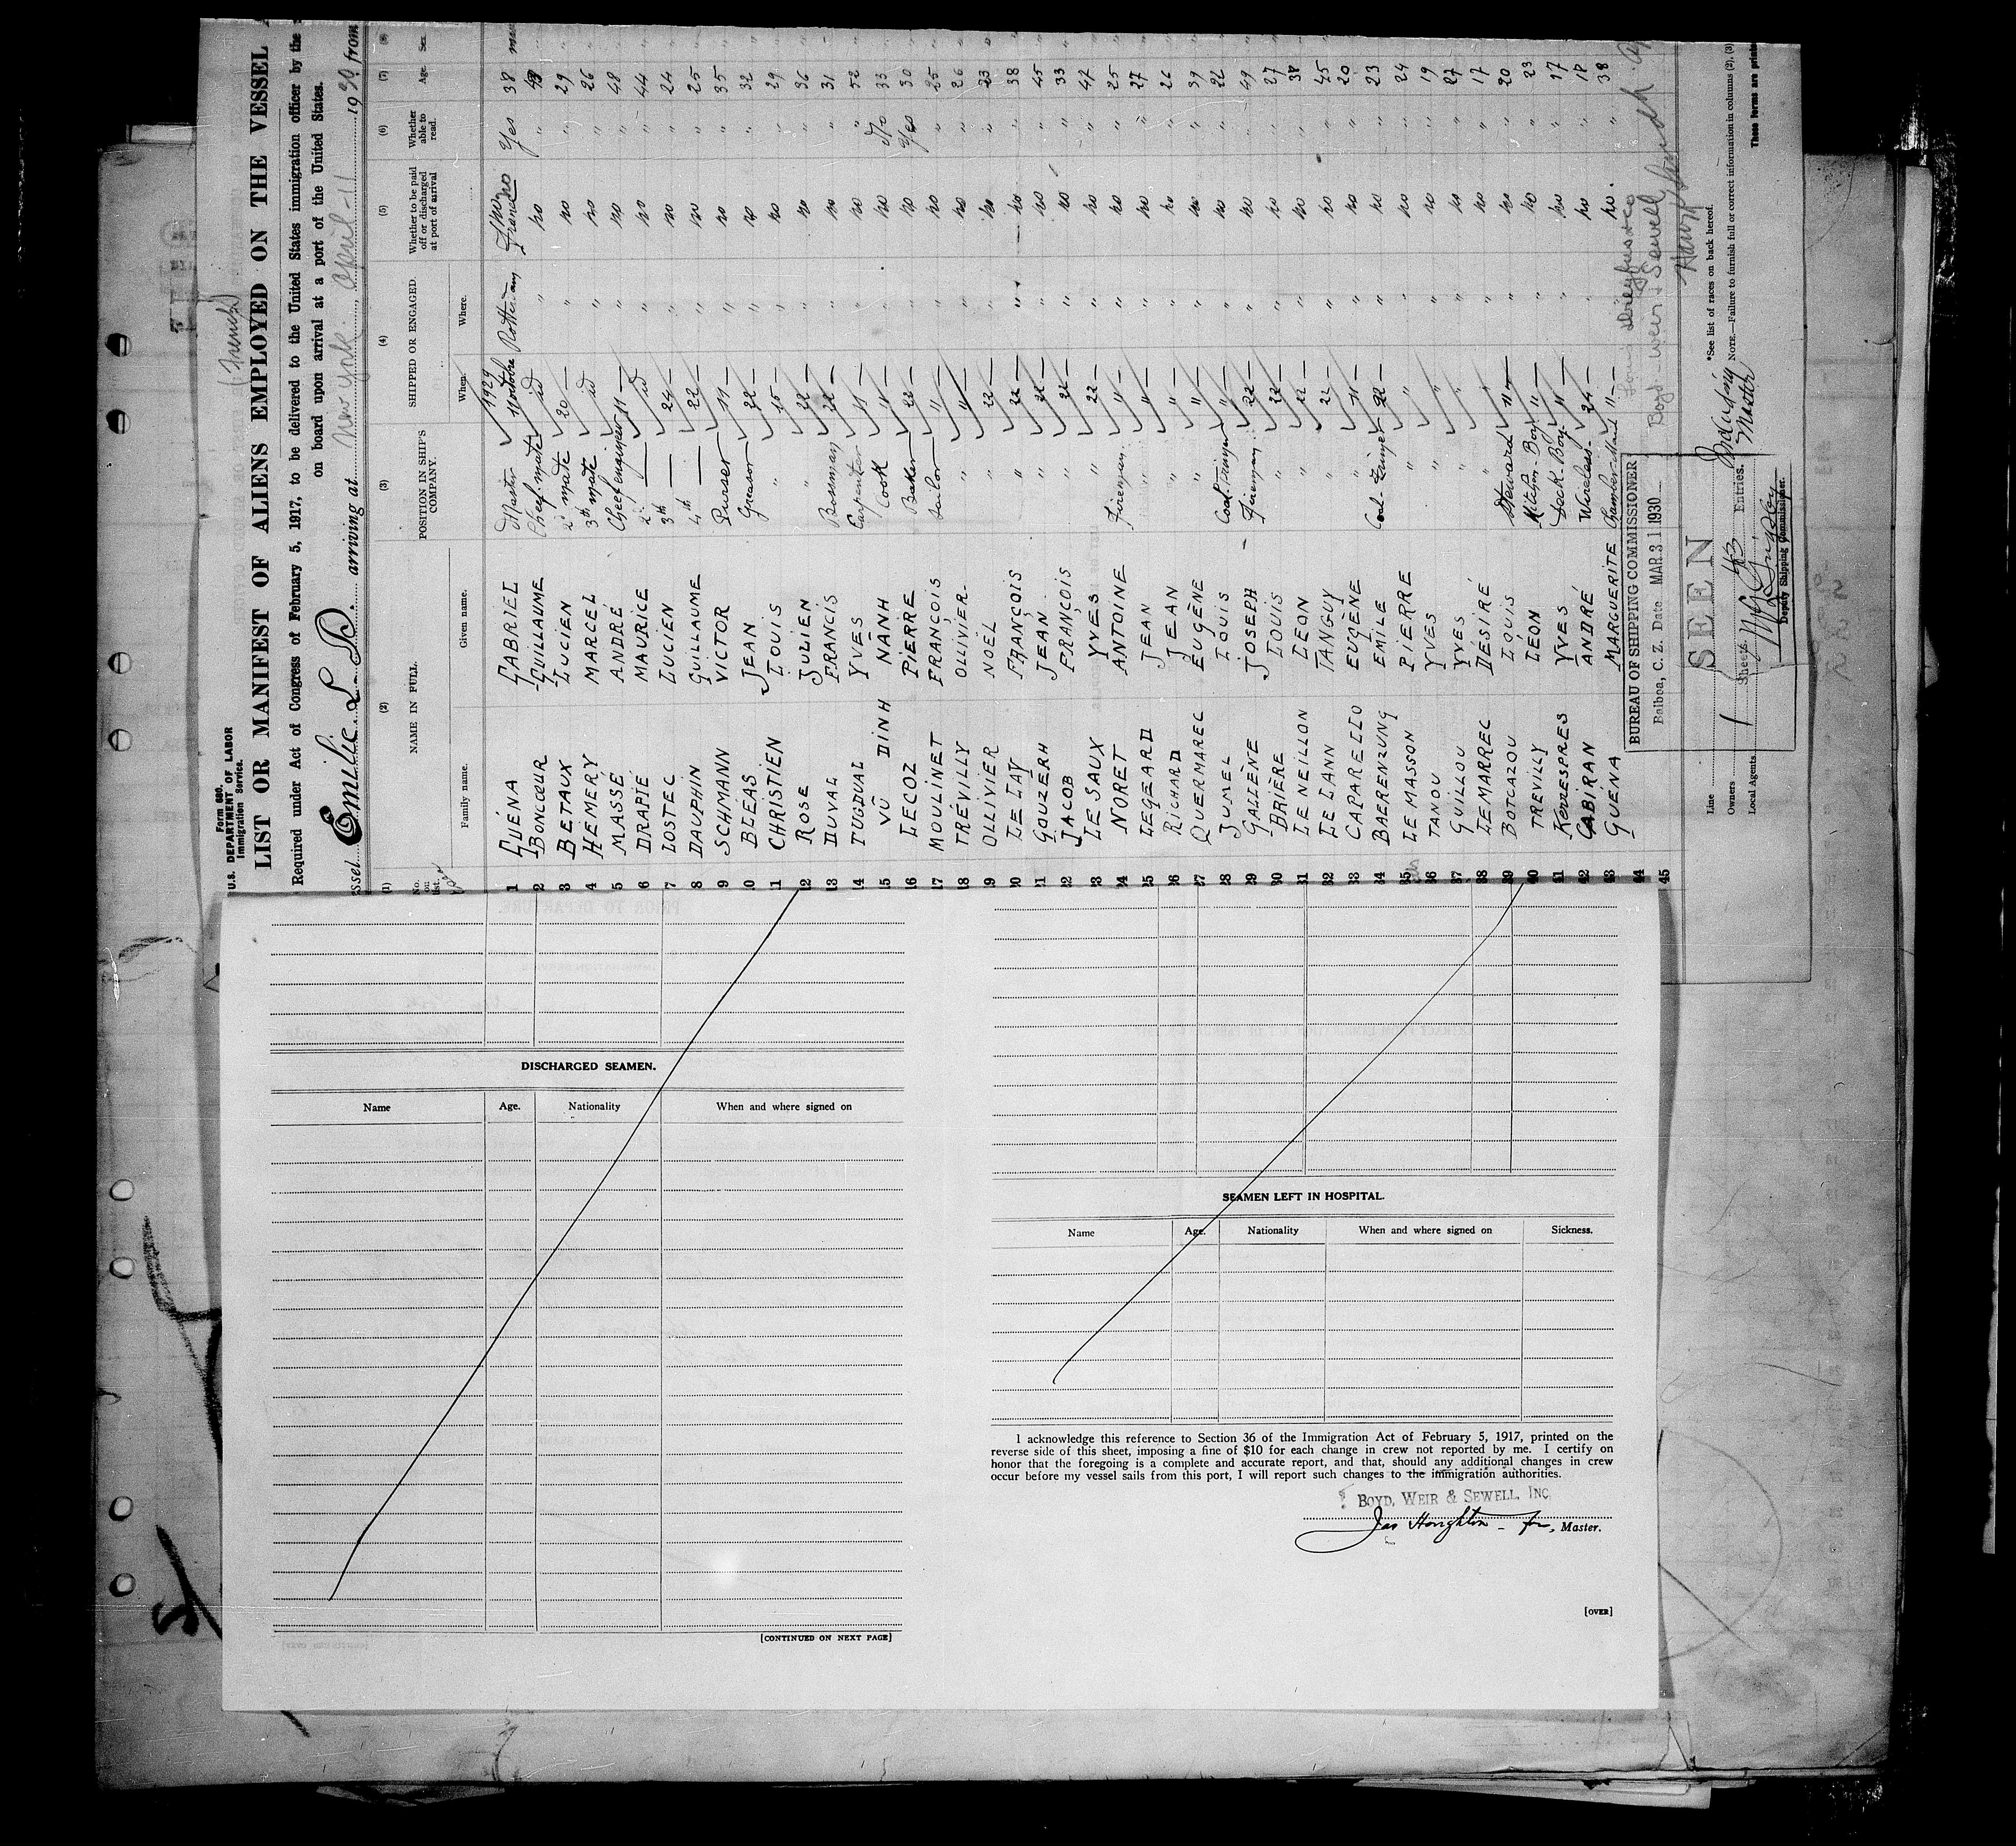 (French)
Form 680.
U.S. DEPARTMENT OF LABOR
Immigration Service.
LIST OR MANIFEST OF ALIENS EMPLOYED ON THE VESSEL
Required under Act of Congress of February 5, 1917, to be delivered to the United States immigration officer by the
on board upon arrival at a port of the United States.
ssel Emile L. D. arriving at New York. April - 11 1930 from
(1) (2) (3) (4) (5) (6) (7) (8)
No. on list. NAME IN FULL. POSITION IN SHIP'S COMPANY. SHIPPED OR ENGAGED. Whether to be paid off or discharged at port of arrival Whether able to read. Age. Sex.
Family name. Given name. When. Where.
1929
1 GUÉNA GABRIEL Master 11 octobre Rotterdam no Yes 38
2 BONCŒUR GUILLAUME Cheef. mate id " no "
3 BETAUX LUCIEN 2d mate 20 — " no " 29
4 HÉMERY MARCEL 3th mate id " no " 26
5 MASSÉ ANDRÉ Cheef engineer 11 — " no " 48
6 DRAPIÉ MAURICE 2d — id " no " 44
7 LOSTEC LUCIEN 3th — 24 — " no " 24
8 DAUPHIN GUILLAUME 4th — 22 — " no " 25
9 SCHMANN VICTOR Purser 11 — " no " 35
10 BLÉAS JEAN Greasor 22 — " no " 32
11 CHRISTIEN LOUIS " 15 — " no " 29
12 ROSE JULIEN " 22 — " no " 36
13 DUVAL FRANCIS Bossman 22 — " no " 31
14 TUGDUAL YVES Carpenter 11 — " no " 52
15 VÛ DINH NANH Cook 11 — " no No 33
16 LECOZ PIERRE Baker 22 — " no Yes 30
17 MOULINET FRANÇOIS Sailor 11 — " no " 25
18 TRÉVILLY OLLIVIER " 11 — " no " 26
19 OLLIVIER NOËL " 22 — " no " 23
20 LE LAY FRANÇOIS " 22 — " no " 38
21 GOUZERH JEAN " 22 — " no " 45
22 JACOB FRANÇOIS " 22 — " no " 33
23 LE SAUX YVES " 22 — " no " 47
24 NORET ANTOINE Fireman 11 — " no " 25
25 LEGEARD JEAN " 11 — " no " 27
26 RICHARD JEAN " " — " no " 26
27 QUERMAREC EUGÈNE " " — " no " 39
28 JUMEL LOUIS Coal-Trimper " — " no " 22
29 GALLÈNE JOSEPH Fireman 22 — " no " 49
30 BRIÈRE LOUIS " 22 — " no " 27
31 LE NEILLON LEON " 22 — " no " 38
32 LE LANN TANGUY " 22 — " no " 45
33 CAPARELLO EUGÈNE " 11 — " no " 20
34 BAERENZUNG EMILE Coal-Trimper 22 — " no " 23
35 LE MASSON PIERRE " " " no " 24
36 TANOU YVES " " " no " 19
37 GUILLOU YVES " " " no " 27
38 LEMARREC DÉSIRÉ " " " no " 17
39 BOTCAZOU LOUIS Steward 11 — " no " 20
40 TREVILLY LÉON Kitchen-Boy " — " no " 23
41 KERRESPRES YVES Deck-Boy 11 — " no " 17
42 CABIRAN ANDRÉ Wireless 24 — " no " 18
43 GUÉNA MARGUERITE Chamber-Maid 11 — " no " 38
44
45
Louis Dreyfus & Co
Boyd - Weir & Sewell
BUREAU OF SHIPPING COMMISSIONER
Balboa, C. Z. Date MAR 31 1930
SEEN
1 Sheets 43 Entries.
Including Master
Deputy Shipping Commissioner.
Line
Owners
Local Agents
*See list of races on back hereof.
NOTE.—Failure to furnish full or correct information in columns (2), (3)
These forms are printe
DISCHARGED SEAMEN.
Name Age. Nationality When and where signed on
[CONTINUED ON NEXT PAGE]
SEAMEN LEFT IN HOSPITAL.
Name Age. Nationality When and where signed on Sickness.
I acknowledge this reference to Section 36 of the Immigration Act of February 5, 1917, printed on the
reverse side of this sheet, imposing a fine of $10 for each change in crew not reported by me. I certify on
honor that the foregoing is a complete and accurate report, and that, should any additional changes in crew
occur before my vessel sails from this port, I will report such changes to the immigration authorities.
BOYD, WEIR & SEWELL, INC.
Jas Houghton - for, Master.
[OVER]